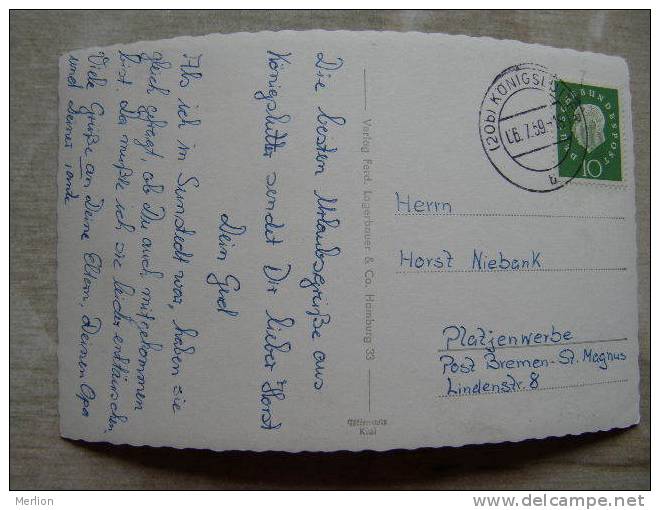 Die besten Urlaubsgrüße aus
Königslutter sendet Dir lieber Horst
Dein Gerd
Als ich in Sunstedt war, haben sie
gleich gefragt, ob Du auch mitgekommen
bist. Da mußte ich sie leider enttäuschen
Viele Grüße an Deine Eltern, Deinen Opa
und Deiner Tante
Verlag Ferd. Lagerbauer & Co. Hamburg 33
(20b) KÖNIGSL
06.7.59
b
DEUTSCHE BUNDESPOST
10
Herrn
Horst Niebank
Platjenwerbe
Post Bremen-St. Magnus
Lindenstr. 8
Kiel
Merlion
www.delcampe.net